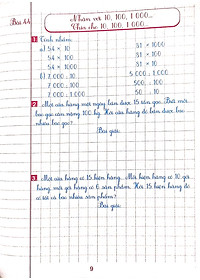 Bài 44
Nhân với 10, 100, 1 000...
Chia cho 10, 100, 1 000...
1 Tính nhẩm
a) 54 × 10
31 × 1000
54 × 100
31 × 100
54 × 1000
31 × 10
b) 7 000 : 10
5 000 : 1 000
7 000 : 100
500 : 100
7 000 : 1 000
50 : 10
2 Một cửa hàng một ngày bán được 15 tấn gạo. Biết mỗi
bao gạo cân nặng 100 kg. Hỏi cửa hàng đó bán được bao
nhiêu bao gạo?
Bài giải:
3 Một cửa hàng có 15 kiện hàng. Mỗi kiện hàng có 10 gói
hàng, mỗi gói hàng có 6 sản phẩm. Hỏi 15 kiện hàng đó
có tất cả bao nhiêu sản phẩm?
Bài giải:
9